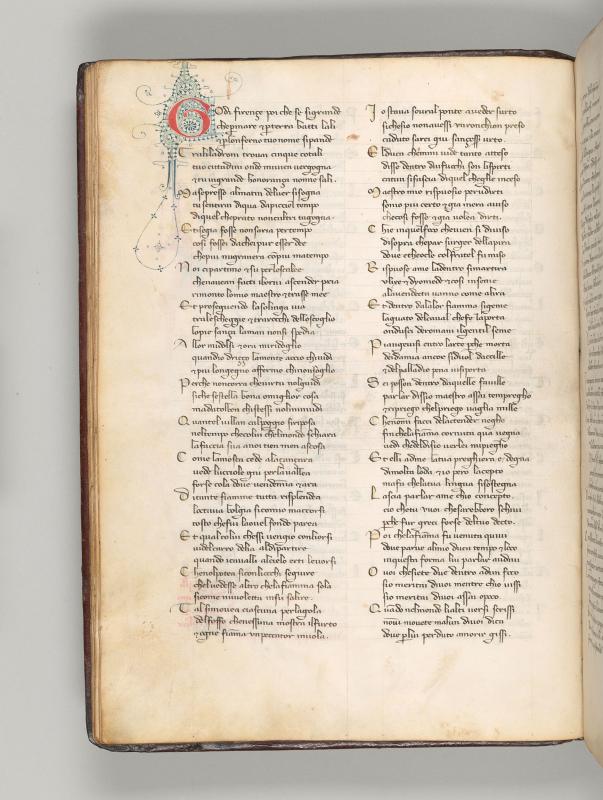 Godi firençe poi che se sigrande
chepmare & perterra batti lali
& plonferno tuo nome sipande
Tra li ladron trovai cinque cotali
tuoi cittadini onde mi ven vergogna
& tu ingrande honorança nonne sali.
Ma sepresso almatin deluer sisogna
tu sentirai diqua dapicciol tempo
diquel cheprato nonchaltri tagogna
Et segia fosse nonsaria pertempo
cosi fosse dachei pur esser dee
chepiu migravera cõpiu matempo
Noi cipartimo & su perlescalee
chenavean facti iborni ascender pria
rimonto lomio maestro & trasse mee
Et proseguendo lasolinga via
tralescheggie & trarocchi delloscoglio
lopie sança laman nonsi spedia
Allor midolsi & ora miridoglio
quando driçço lamente accio chiuidi
& piu longegno affreno chinonsoglio
Perche noncorra chevirtu nolguidi
siche sestella bona omiglior cosa
madatolben chistessi nolminuidi
Quantel uillan calpoggio siriposa
neltempo checolui chelmondo schiara
lafaccia sua anoi tien men ascosa
Come lamosca cede alaçançara
vede lucciole giu perlavallea
forse cola dove vendemia & ara
Di tante fiamme tutta risplendea
loctava bolgia sicomio maccorsi
tosto chefui laovel fondo parea
Et qual colui chessi vengio conliorsi
videlcarro delia aldipartire
quando icavalli alcielo erti levorsi
Chenolpotea siconliocchi seguire
chelvedesse altro chelafiamma sola
sicome nuvoletta insu salire
Tal simovea ciascuna perlagola
delfosso chenessuna mostra ilfurto
& ogne fiãma unpeccator invola.
Io stava sovral ponte aveder surto
sichesio nonavessi un ronchion preso
caduto sarei giu sançessi urto.
Elduca chemmi vide tanto atteso
disse dentro dafuochi son lispirti
catun sifascia diquel chegli e inceso
Maestro mio rispuosio perudirti
sono piu certo & gia mera aviso
checosi fosse & gia volea dirti.
Chie inquelfoco cheven si diviso
disopra chepar surger dellapira
dove etheocle colfratel fu miso
Rispuose ame ladentro simartira
ulixe & dyomede & cosi insieme
alavendetta vanno come alira
Et dentro dalalor fiamma sigeme
laguato delcaval chefe laporta
ondusci deromani ilgentil seme
Piangevisi entro larte pche morta
deidamia ancor siduol dacelle
& delpalladio pena visiporta
Sei posson dentro daquelle faville
parlar dissio maestro assai tempreggho
& ripriego chelpriego vaglia mille
Chenomi facci delactender negho
finchelafiãma cornuta qua vegna
vedi chedeldisio verlei mipiegho
Et elli adme latua preghiera e degna
dimolta loda & io pero lacepto
mafa chelatua lingua sisostegna
Lascia parlar ame chio concepto
cio chetu vuoi chesarebbero schivi
pche fur greci forse deltuo decto.
Poi chelafiãma fu venuta quivi
dove parve almio duca tempo & loco
inquesta forma lui parlar audivi
O voi chesiete due dentro adun foco
sio meritai divoi mentre chio vissi
sio meritai divoi assai opoco.
Quãdo nelmondo lialti versi scrissi
non vi movete malun divoi dica
dove plui perduto amorir gissi.